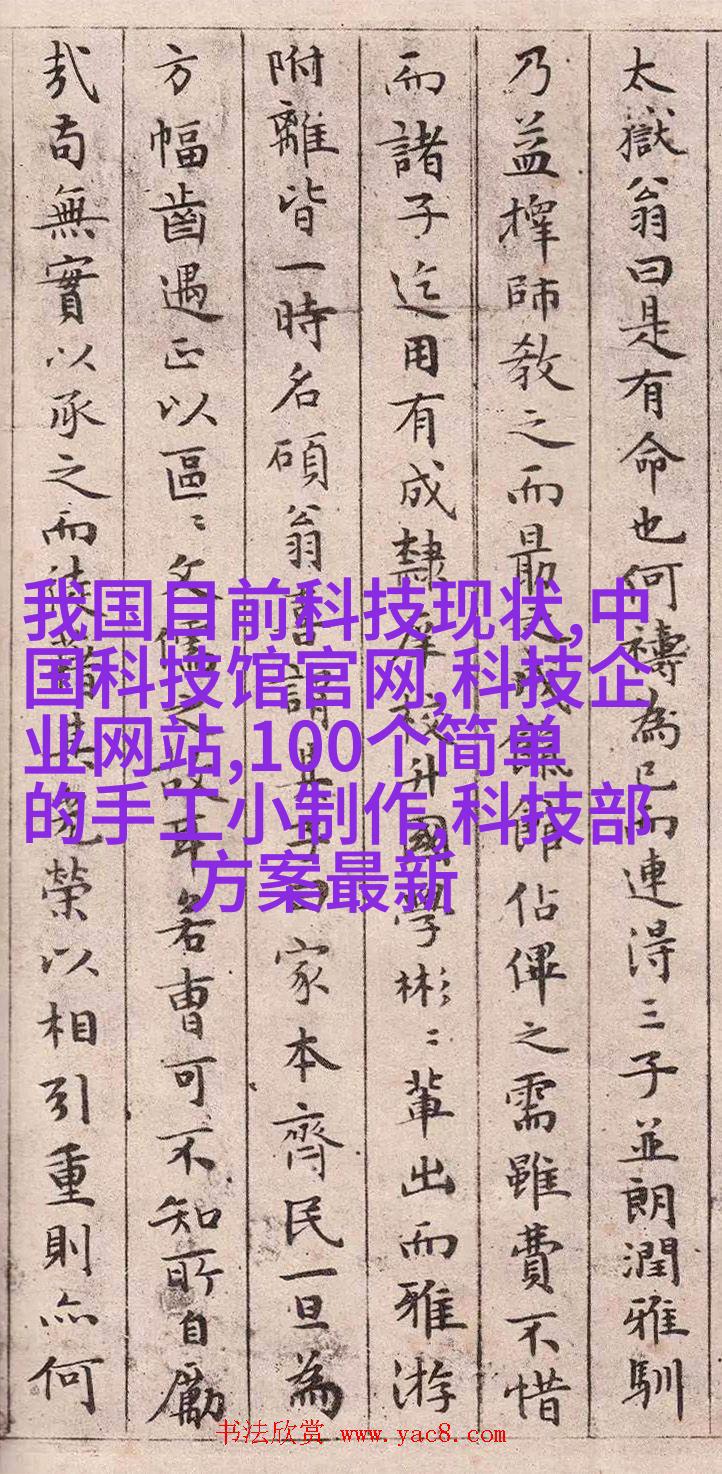 太嶽翁曰是有命也何禱為已而連得三子並朗潤雅馴
乃益擇師教之而最之館佔之需雖費不惜
而諸子迄用有成隸庠校升國學彬〻輩出而雅游
附離皆一時名碩翁書謂其子曰家本齊民一旦為
方幅齒遇正以區〻文儒之故耳若曹可不知所自勵
哉苟無實以承之而徒藉其光榮以相引重則亦何
我国目前科技现状,中
国科技馆官网,科技企
业网站,100个简单
的手工小制作,科技部
方案最新
书法欣赏 www.yac8.com